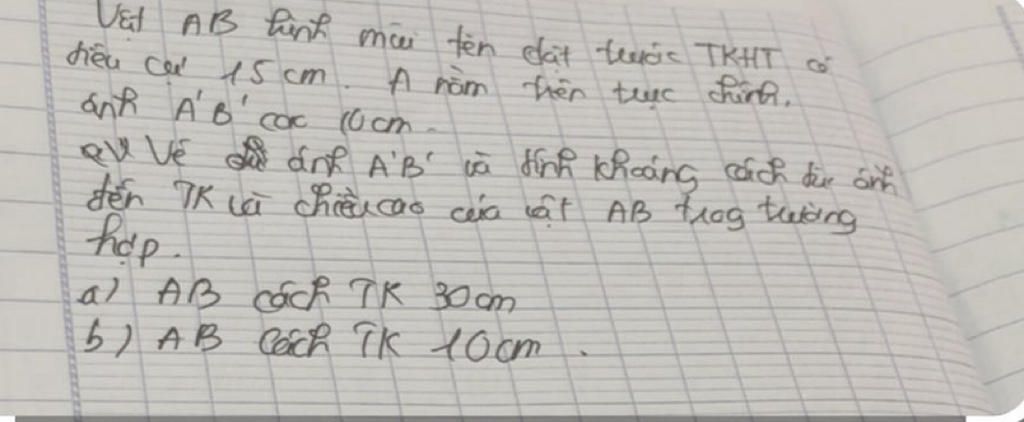 Vật AB hình mũi tên đặt trước TKHT có
tiêu cự 15 cm. A nằm trên trục chính.
ảnh A'B' cao 10cm.
Vẽ ảnh A'B' và tính khoảng cách từ ảnh
đến TK và chiều cao của vật AB trog trường
hợp.
a) AB cách TK 30cm
b) AB cách TK 10cm.